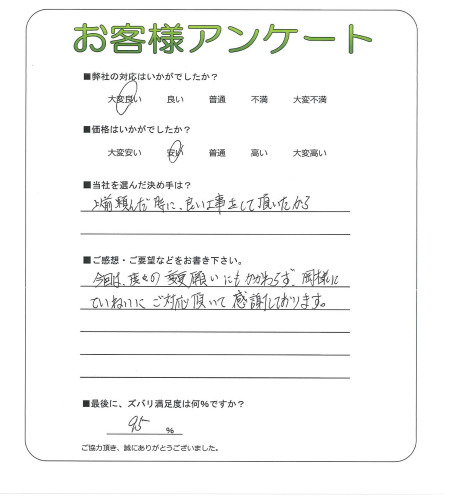 お客様アンケート
■弊社の対応はいかがでしたか？
大変良い 良い 普通 不満 大変不満
■価格はいかがでしたか？
大変安い 安い 普通 高い 大変高い
■当社を選んだ決め手は？
以前頼んだ時に、良い工事をして頂いたから
■ご感想・ご要望などをお書き下さい。
今回は、度々の変更願いにもかかわらず、岡様に
ていねいにご対応頂いて感謝しております。
■最後に、ズバリ満足度は何％ですか？
95 ％
ご協力頂き、誠にありがとうございました。